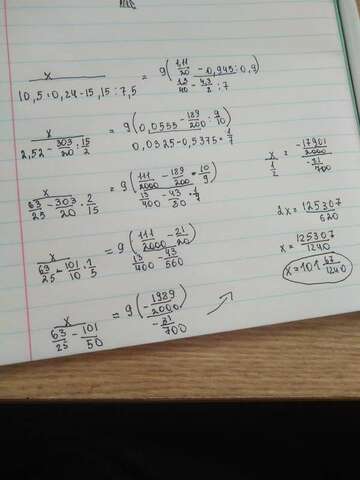 x / (10,5 · 0,24 - 15,15 : 7,5) = 9(1,11/20 - 0,945 : 0,9) / (13/40 - 4,3/2 : 7)
x / (2,52 - 303/20 : 15/2) = 9(0,0555 - 189/200 : 9/10) / (0,0325 - 0,5375 · 1/7)
x / (63/25 - 303/20 · 2/15) = 9(111/2000 - 189/200 · 10/9) / (13/400 - 43/80 · 1/7)
x / (63/25 - 101/10 · 1/5) = 9(111/2000 - 21/20) / (13/400 - 43/560)
x / (63/25 - 101/50) = 9(1989/2000) / (-31/700)
x / (1/2) = (-17901/2000) / (-31/700)
2x = 125307/620
x = 125307/1240
x = 101 67/1240